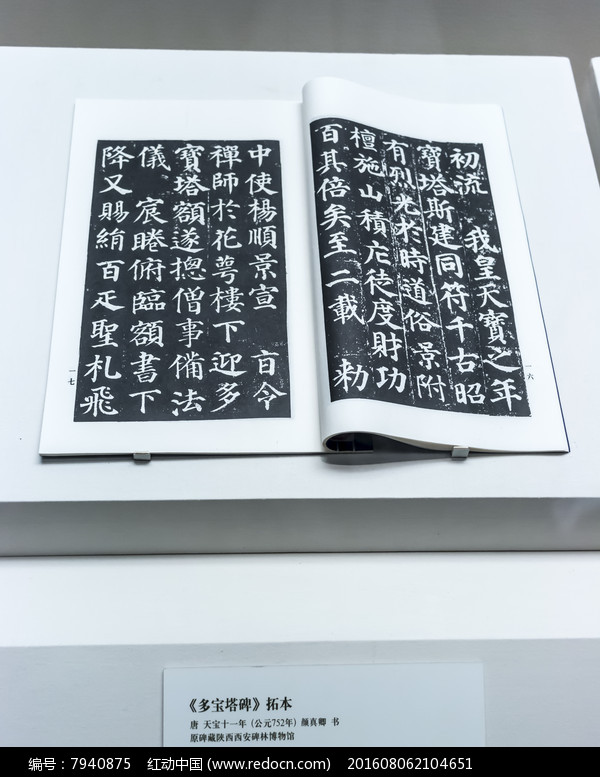 初流 我皇天寶之年
寶塔斯建同符千古昭
有烈光於時道俗景附
檀施山積庀徒度財功
百其倍矣至二載 勅
一六
中使楊順景宣 旨令
禪師於花萼樓下迎多
寶塔額遂揔僧事備法
儀 宸睠俯臨額書下
降又賜絹百疋聖札飛
一七
《多宝塔碑》拓本
唐 天宝十一年（公元752年）颜真卿 书
原碑藏陕西西安碑林博物馆
编号：7940875 红动中国 (www.redocn.com) 201608062104651